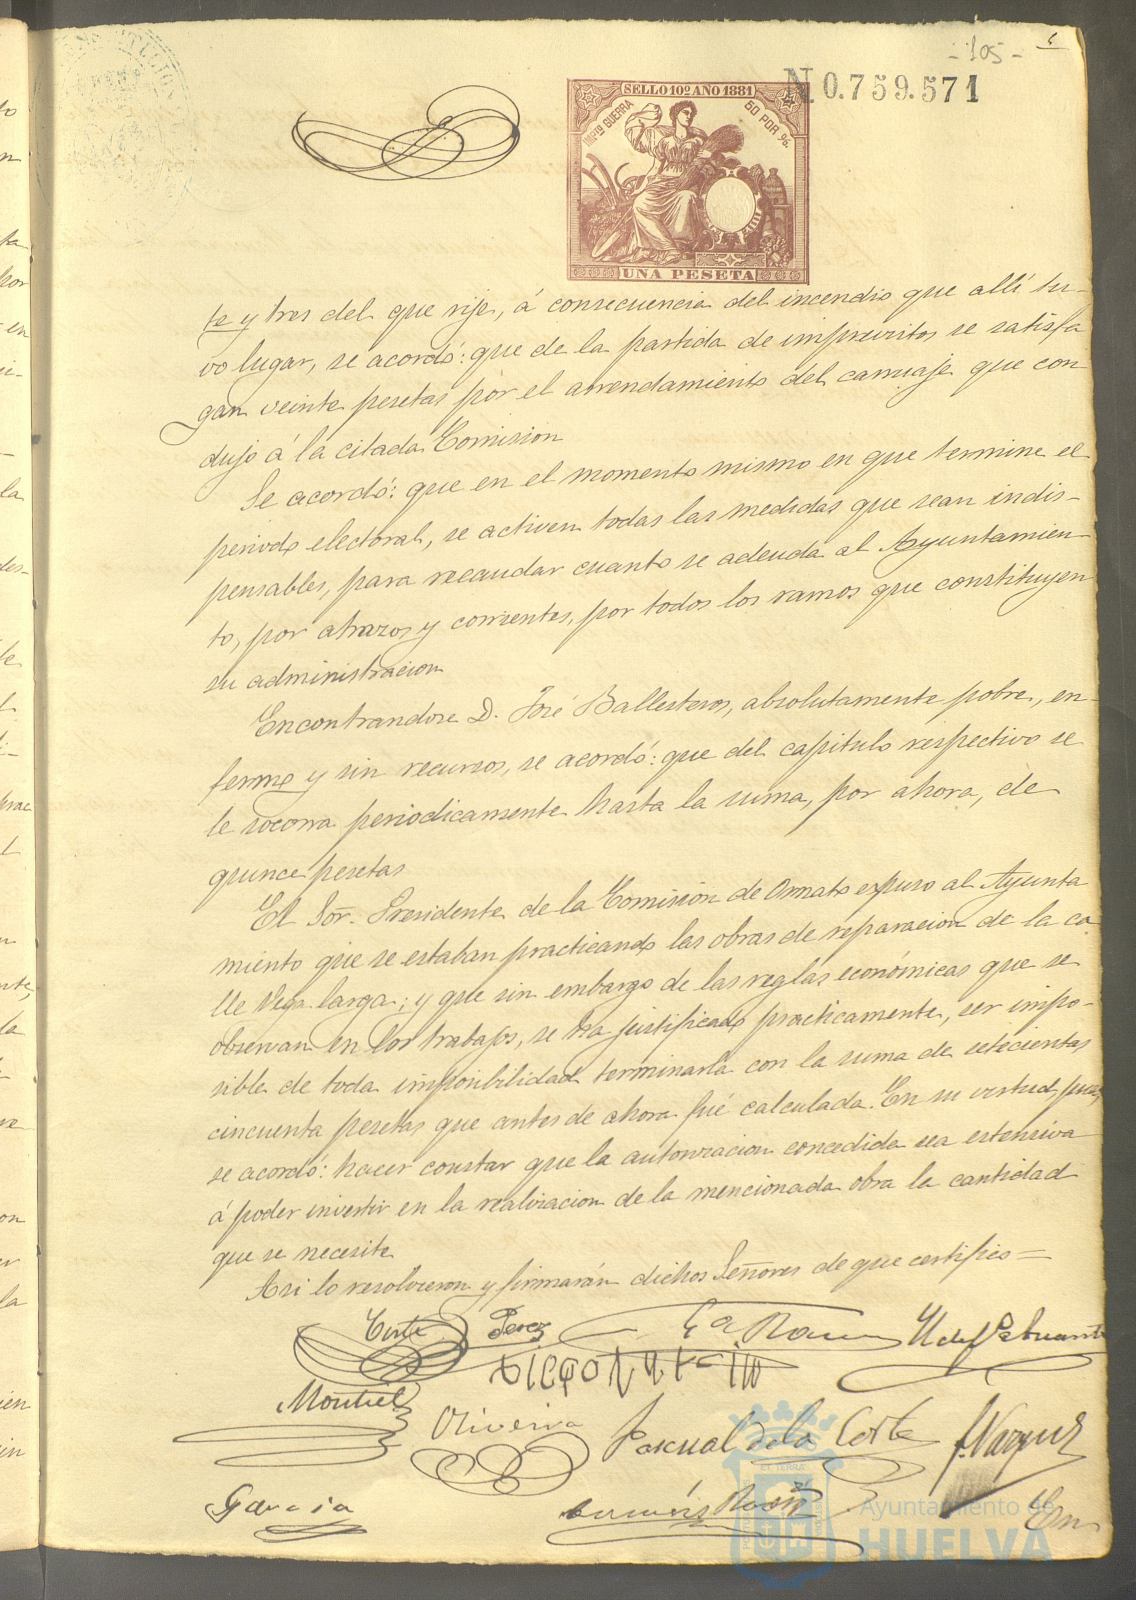 - 105 -
N 0.759.571
SELLO 10º AÑO 1881
IMPTO GUERRA
50 POR %.
UNA PESETA
te y tres del que rije, á consecuencia del incendio que allí tu-
vo lugar, se acordó: que de la partida de imprevistos se satisfa
gan veinte pesetas por el arrendamiento del carruaje que con
dujo á la citada Comision
Se acordó: que en el momento mismo en que termine el
periodo electoral, se activen todas las medidas que sean indis-
pensables, para recaudar cuanto se adeuda al Ayuntamien
to, por atrazos y corrientes, por todos los ramos que constituyen
su administracion
Encontrandose D. José Ballesteros, absolutamente pobre, en-
fermo y sin recursos, se acordó: que del capitulo respectivo se
le socorra periodicamente hasta la suma, por ahora, de
quince pesetas
El Sõr. Presidente de la Comisión de Ornato expuso al Ayunta
miento que se estaban practicando las obras de reparacion de la ca
lle Vega larga; y que sin embargo de las reglas económicas que se
observan en los trabajos, se ha justificado practicamente, ser impo-
sible de toda imposibilidad terminarla con la suma de setecientas
cincuenta pesetas que antes de ahora fué calculada. En su virtud, pues,
se acordó: hacer constar que la autorizacion concedida sea estensiva
á poder invertir en la realizacion de la mencionada obra la cantidad
que se necesite
Asi lo resolvieron y firmarán dichos Señores de que certifico=
Corte Perez
Montiel Oliveira Pascual de la Corte F. Vazquez
Garcia
Ayuntamiento de
HUELVA